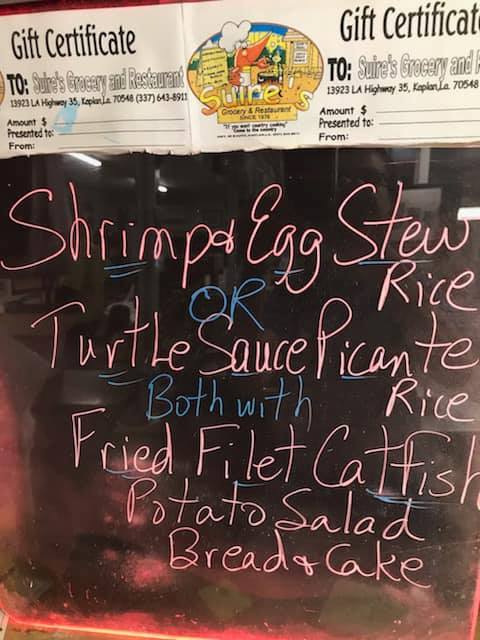 Gift Certificate
TO: Suire's Grocery and Restaurant
13923 LA Highway 35, Kaplan, La. 70548 (337) 643-8911
Amount $
Presented to:
From:
Suire's
Grocery & Restaurant
SINCE 1976
Gift Certificat
TO: Suire's Grocery and
13923 LA Highway 35, Kaplan, La. 70548
Amount $
Presented to:
From:
Shrimp & Egg Stew
Rice
OR
Turtle Sauce Picante
Both with Rice
Fried Filet Catfish
Potato Salad
Bread & Cake